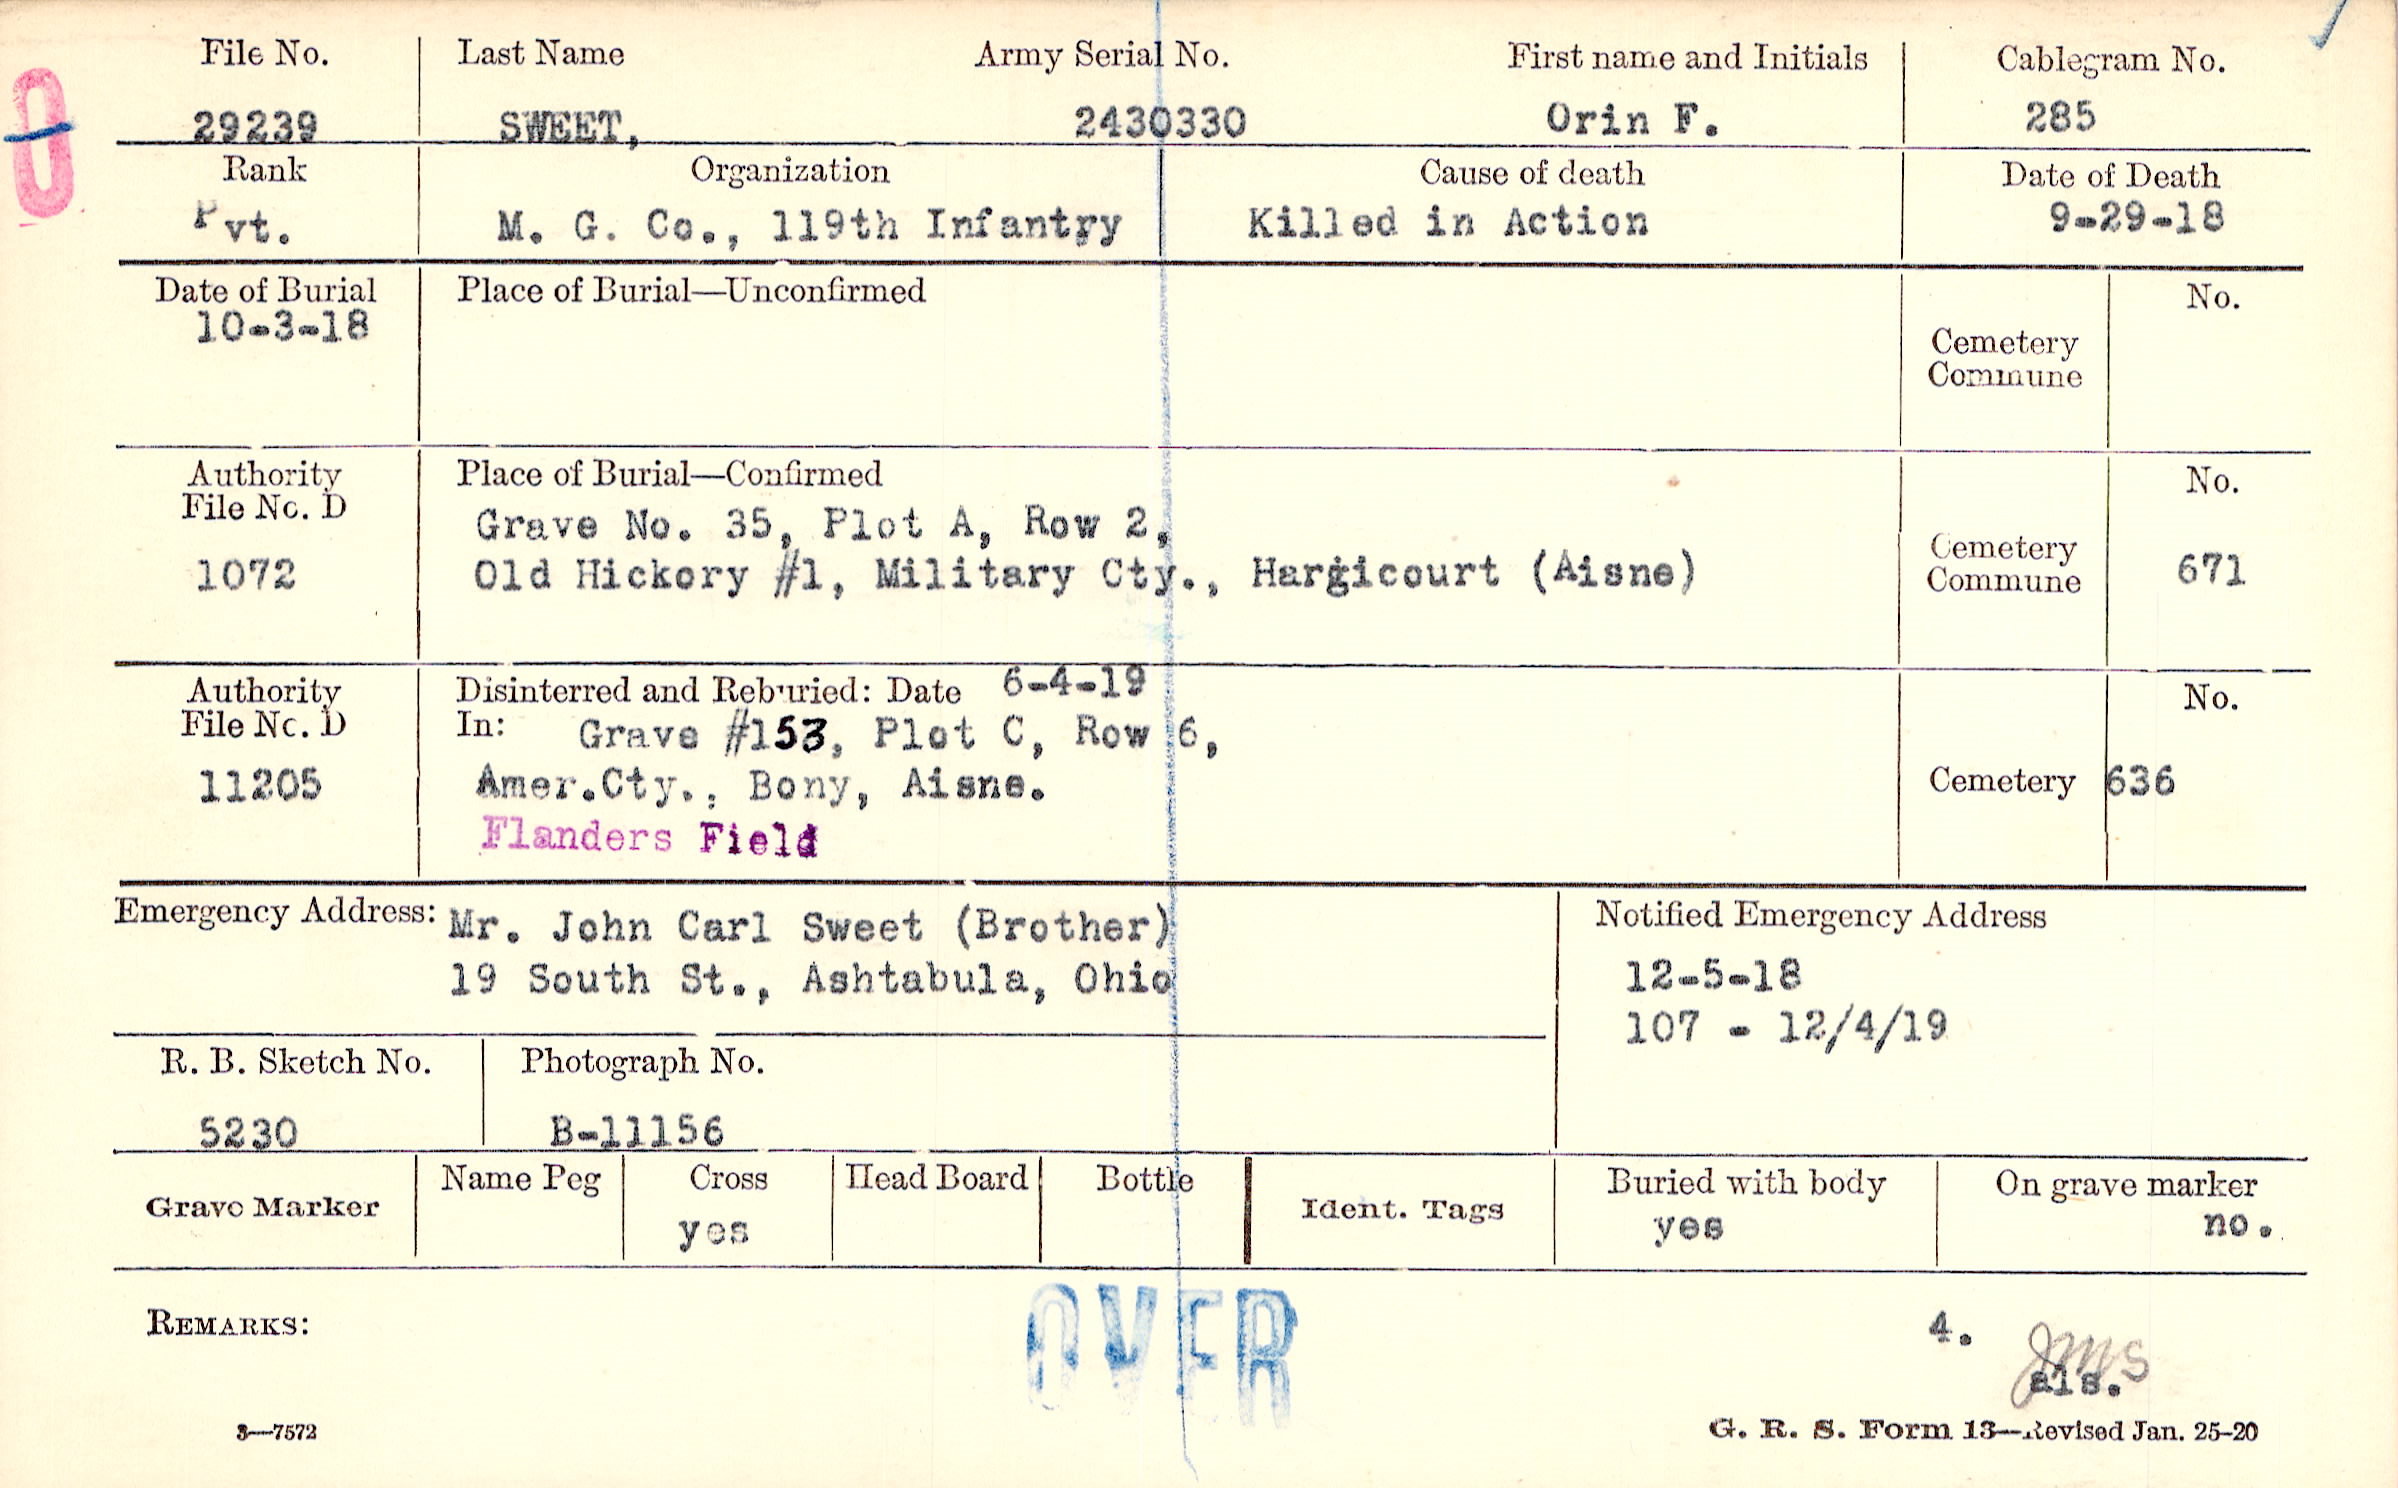 File No. Last Name Army Serial No. First name and Initials Cablegram No.
0
29239 SWEET, 2430330 Orin F. 285
Rank Organization Cause of death Date of Death
Pvt. M. G. Co., 119th Infantry Killed in Action 9-29-18
Date of Burial Place of Burial—Unconfirmed No.
10-3-18
Cemetery
Commune
Authority Place of Burial—Confirmed No.
File No. D
Grave No. 35, Plot A, Row 2,
1072 Old Hickory #1, Military Cty., Hargicourt (Aisne) Cemetery Commune 671
Authority Disinterred and Reburied: Date 6-4-19 No.
File No. D In: Grave #153, Plot C, Row 6,
11205 Amer.Cty., Bony, Aisne. Cemetery 636
Flanders Field
Emergency Address: Mr. John Carl Sweet (Brother) Notified Emergency Address
19 South St., Ashtabula, Ohio 12-5-18
107 - 12/4/19
R. B. Sketch No. Photograph No.
5230 B-11156
Grave Marker Name Peg Cross Head Board Bottle Ident. Tags Buried with body On grave marker
yes yes no.
REMARKS: OVER 4.
JMS
als.
3—7572 G. R. S. Form 13—Revised Jan. 25-20